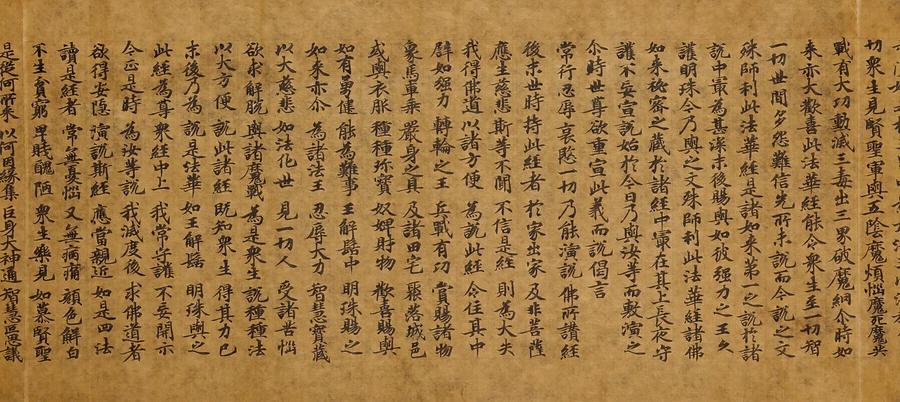 切衆生見賢聖軍與五陰魔煩惱魔死魔共
戰有大功勳滅三毒出三界破魔網尒時如
來亦大歡喜此法華經能令衆生至一切智
一切世間多怨難信先所未說而今說之文
殊師利此法華經是諸如來第一之說於諸
說中冣為甚深末後賜與如彼强力之王久
護明珠今乃與之文殊師利此法華經諸佛
如來秘密之藏於諸經中冣在其上長夜守
護不妄宣說始於今日乃與汝等而敷演之
尒時世尊欲重宣此義而說偈言
常行忍辱 哀愍一切 乃能演說 佛所讚經
後末世時 持此經者 於家出家 及非菩薩
應生慈悲 斯等不聞 不信是經 則為大失
我得佛道 以諸方便 為說此經 令住其中
譬如强力 轉輪之王 兵戰有功 賞賜諸物
象馬車乘 嚴身之具 及諸田宅 聚落城邑
或與衣服 種種珍寶 奴婢財物 歡喜賜與
如有勇健 能為難事 王解髻中 明珠賜之
如來亦尒 為諸法王 忍辱大力 智慧寶藏
以大慈悲 如法化世 見一切人 受諸苦惱
欲求解脫 與諸魔戰 為是衆生 說種種法
以大方便 說此諸經 既知衆生 得其力已
末後乃為 說是法華 如王解髻 明珠與之
此經為尊 衆經中上 我常守護 不妄開示
今正是時 為汝等說 我滅度後 求佛道者
欲得安隱 演說斯經 應當親近 如是四法
讀是經者 常無憂惱 又無病痛 顏色鮮白
不生貧窮 卑賤醜陋 衆生樂見 如慕賢聖
是從何所來 以何因緣集 巨身大神通 智慧叵思議